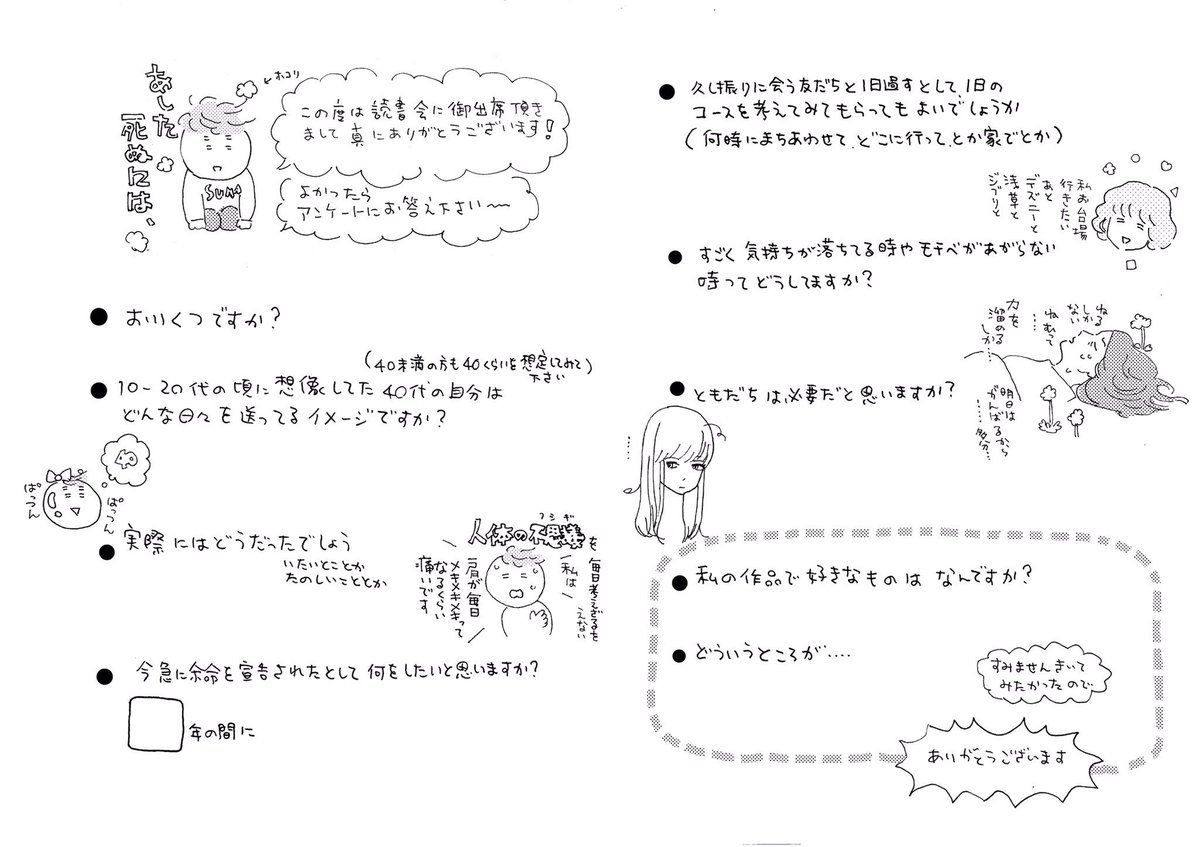 あした
死ぬには、
←ホコリ
この度は読書会に御出席頂き
まして真にありがとうございます!
よかったら
アンケートにお答え下さい〜
SUN
● おいくつですか?
(40未満の方も40くらいを想定してみて
下さい)
● 10-20代の頃に想像してた40代の自分は
どんな日々を送ってるイメージですか?
ぱっつん
ぱっつん
● 実際にはどうだったでしょう
いたいとことか
たのしいこととか
フシギ
人体の不思議を
毎日考えざるを
えない
私は
肩が毎日
メキメキメキって
なるくらい
痛いです
● 今急に余命を宣告されたとして何をしたいと思いますか?
年の間に
● 久し振りに会う友だちと1日過すとして、1日の
コースを考えてみてもらってもよいでしょうか
(何時にまちあわせて、どこに行って、とか家でとか)
私お台場
行きたい
あと
デズニーと
浅草と
ジブリと
● すごく気持ちが落ちてる時やモチベがあがらない
時ってどうしてますか?
ねる
しか
ない
ねむって……
力を
溜める
しか……
明日は
がんばるから
……多分…
● ともだちは必要だと思いますか?
……
● 私の作品で好きなものはなんですか?
● どういうところが....
すみませんきいて
みたかったので
ありがとうございます